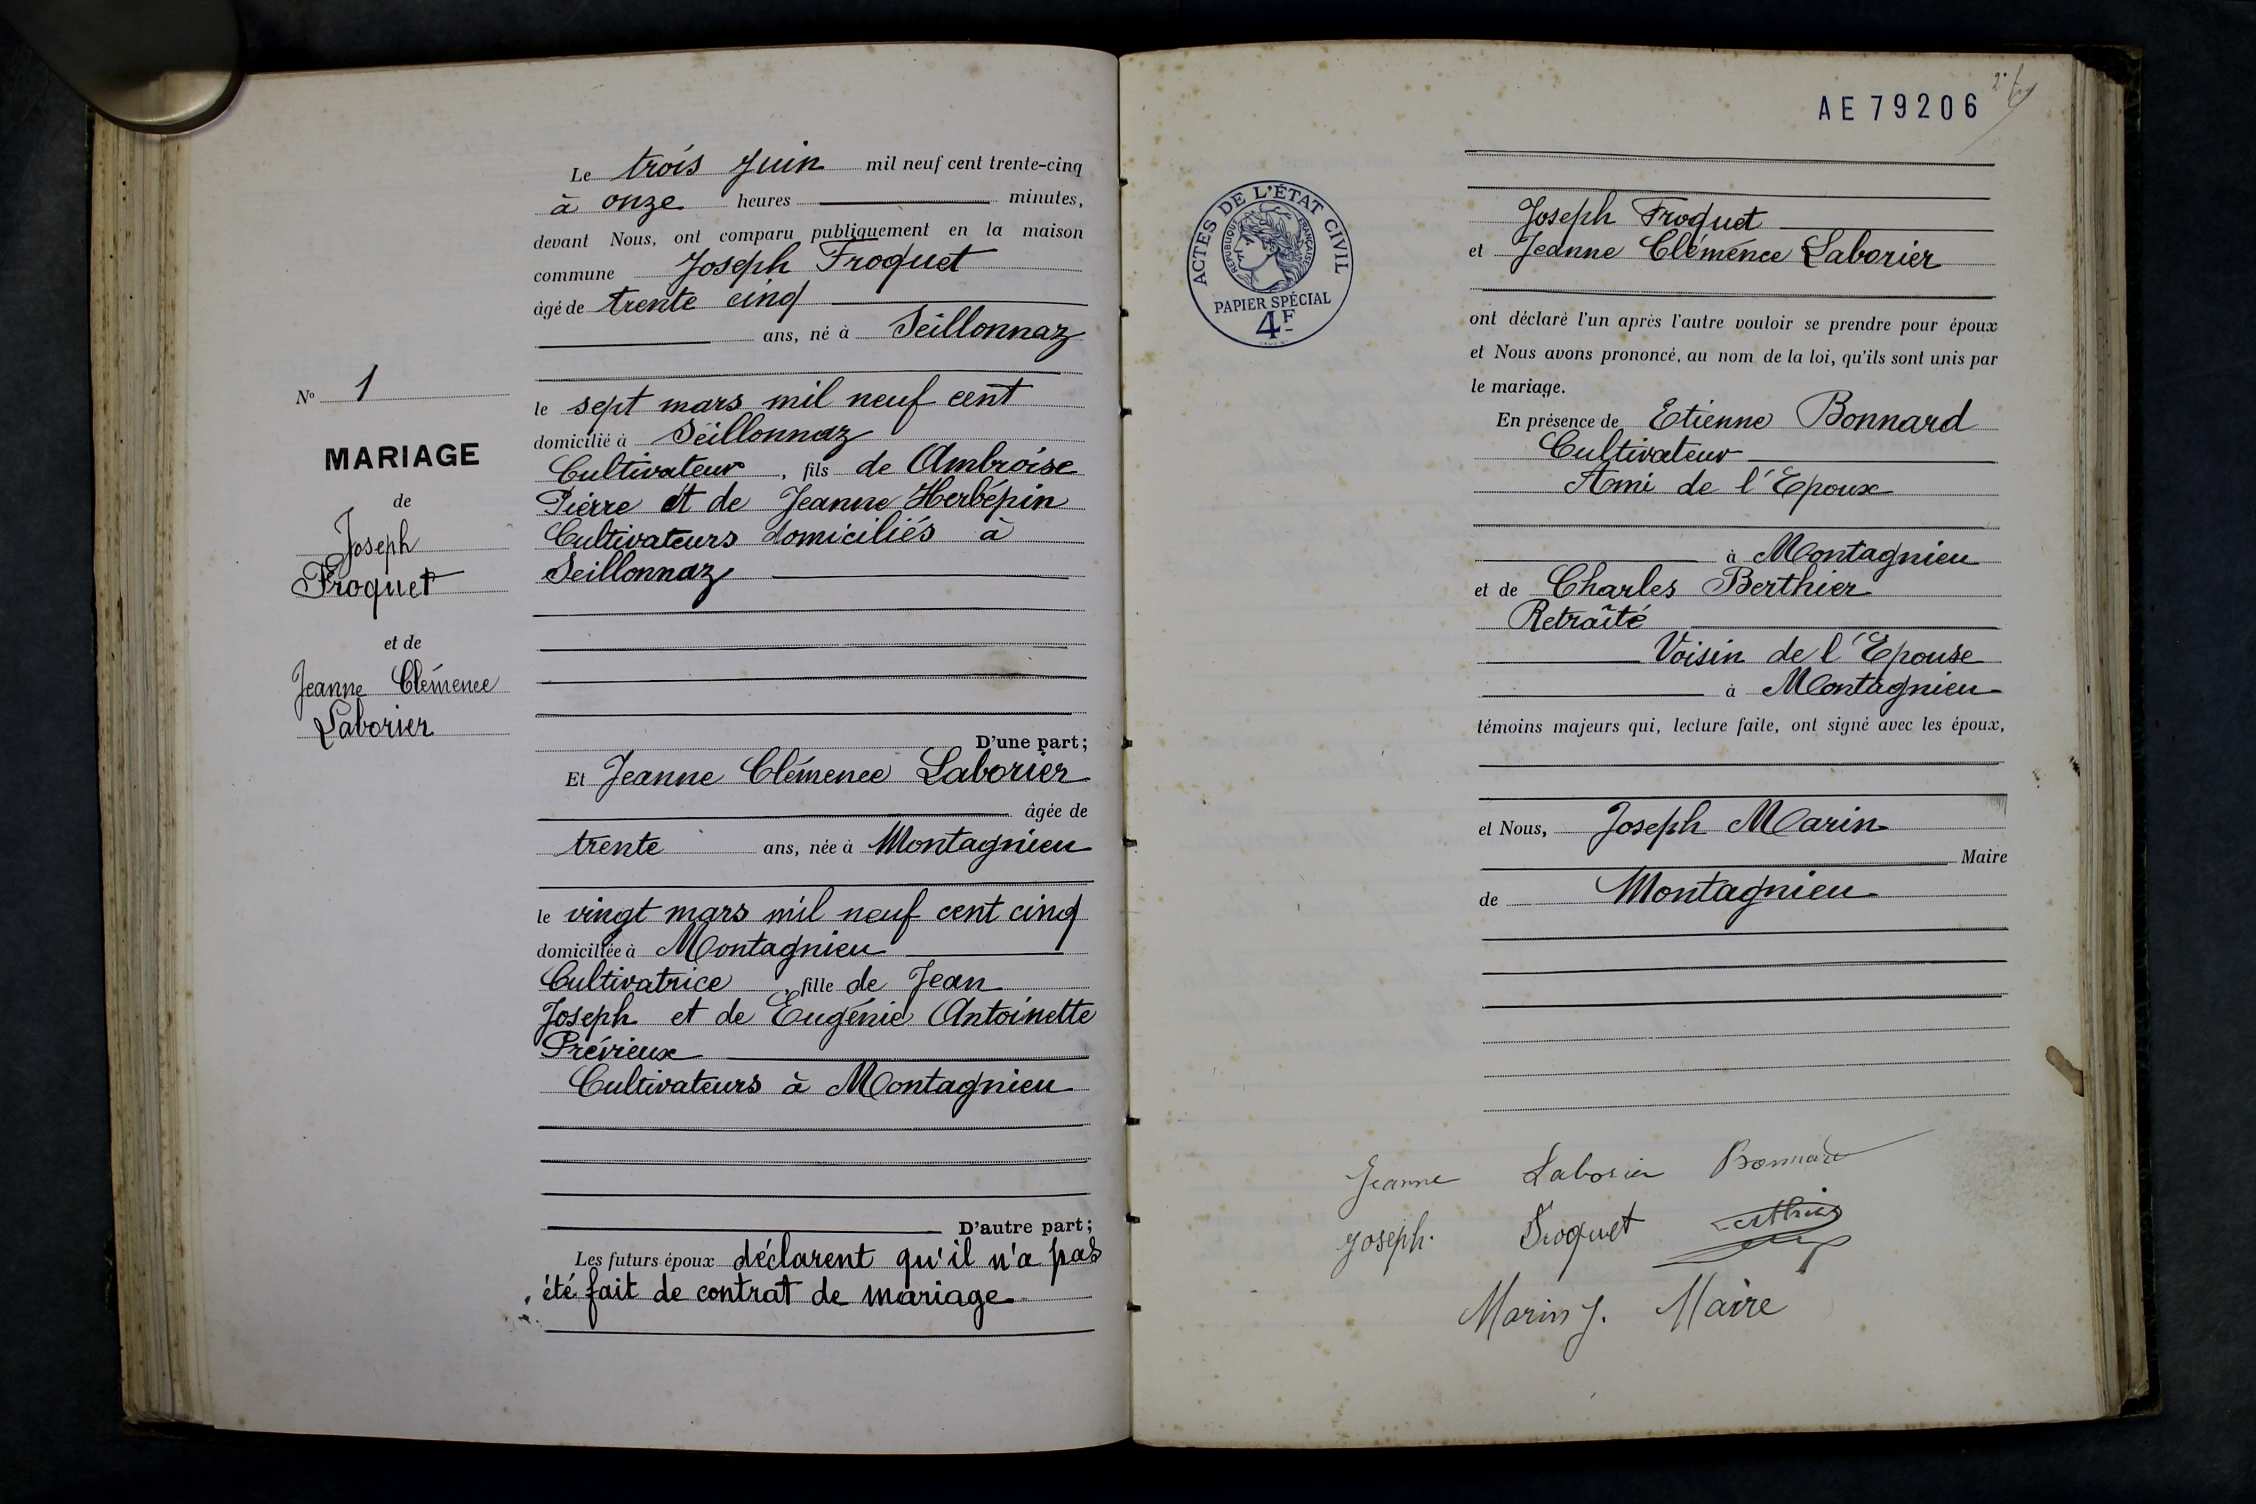 Le trois Juin mil neuf cent trente-cinq
à onze heures minutes,
devant Nous, ont comparu publiquement en la maison
commune Joseph Froquet
âgé de trente cinq
ans, né à Seillonnaz
le sept mars mil neuf cent
domicilié à Seillonnaz
Cultivateur, fils de Ambroise
Pierre et de Jeanne Herbépin
Cultivateurs domiciliés à
Seillonnaz
D'une part;
Et Jeanne Clémence Laborier
âgée de
trente ans, née à Montagnieu
le vingt mars mil neuf cent cinq
domiciliée à Montagnieu
Cultivatrice, fille de Jean
Joseph et de Eugénie Antoinette
Prévieux
Cultivateurs à Montagnieu
D'autre part;
Les futurs époux déclarent qu'il n'a pas
été fait de contrat de mariage
No 1
MARIAGE
de
Joseph
Froquet
et de
Jeanne Clémence
Laborier
AE 79206
ACTES DE L'ÉTAT CIVIL
RÉPUBLIQUE FRANÇAISE
PAPIER SPÉCIAL
4F
Joseph Froquet
et Jeanne Clémence Laborier
ont déclaré l'un après l'autre vouloir se prendre pour époux
et Nous avons prononcé, au nom de la loi, qu'ils sont unis par
le mariage.
En présence de Etienne Bonnard
Cultivateur
Ami de l'Epoux
à Montagnieu
et de Charles Berthier
Retraîté
Voisin de l'Epouse
à Montagnieu
témoins majeurs qui, lecture faite, ont signé avec les époux,
et Nous, Joseph Marin
Maire
de Montagnieu
Jeanne Laborier Bonnard
Joseph. Froquet Berthier
Marin J. Maire